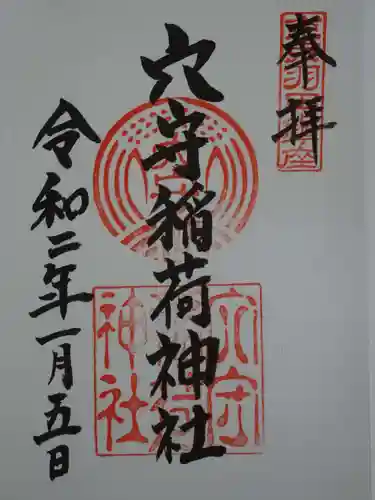 奉拝
穴守稲荷神社
令和二年一月五日